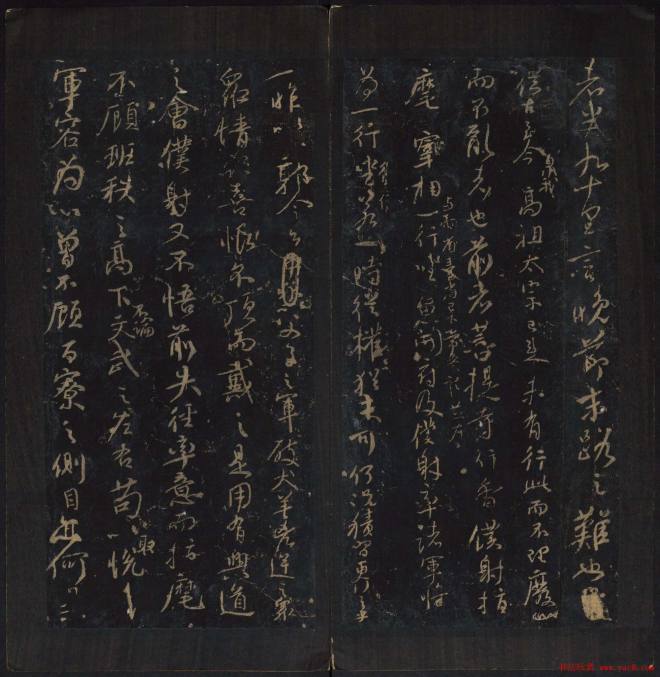 者半九十里言晚節末路之難也
從古至今暨我高祖太宗已來未有行此而不理廢
而不亂者也前者菩提寺行香僕射指
麾宰相一行坐魚開府及僕射率諸軍將
為一行坐若一時從權猶未可何況積習更行之乎
一昨以郭令公父子之軍破犬羊凶逆之眾
眾情欣喜恨不頂而戴之是用有興道
之會僕射又不悟前失徑率意而指麾
不顧班秩之高下不論文武之左右苟取悅
軍容為心曾不顧百寮之側目亦何
书法欣赏 www.yac8.com